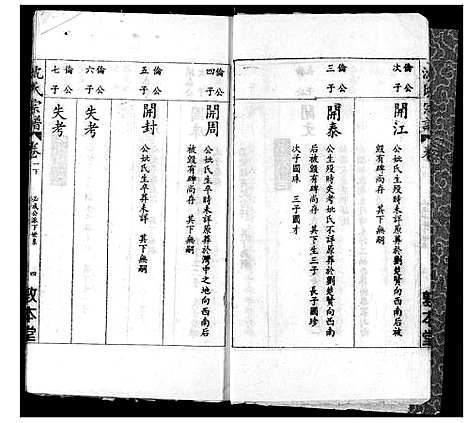 倫公
次子
開江
公妣氏生殁時未詳原葬於劉楚贊向西南后被
毀有碑尚存　其下無嗣
倫公
三子
開泰
公生殁時失考妣氏不詳原葬於劉楚贊向西南
后被毀有碑尚存　其下生三子　長子國珍
次子國珠　三子國才
敦本堂
倫公
四子
開周
公妣氏生卒時未詳原葬於灣中之地向西南后
被毀有碑尚存　其下無嗣
倫公
五子
開封
公妣氏生卒葬未詳　其下無嗣
倫公
六子
失考
倫公
七子
失考
氏宗譜
卷一下
四
敦本堂